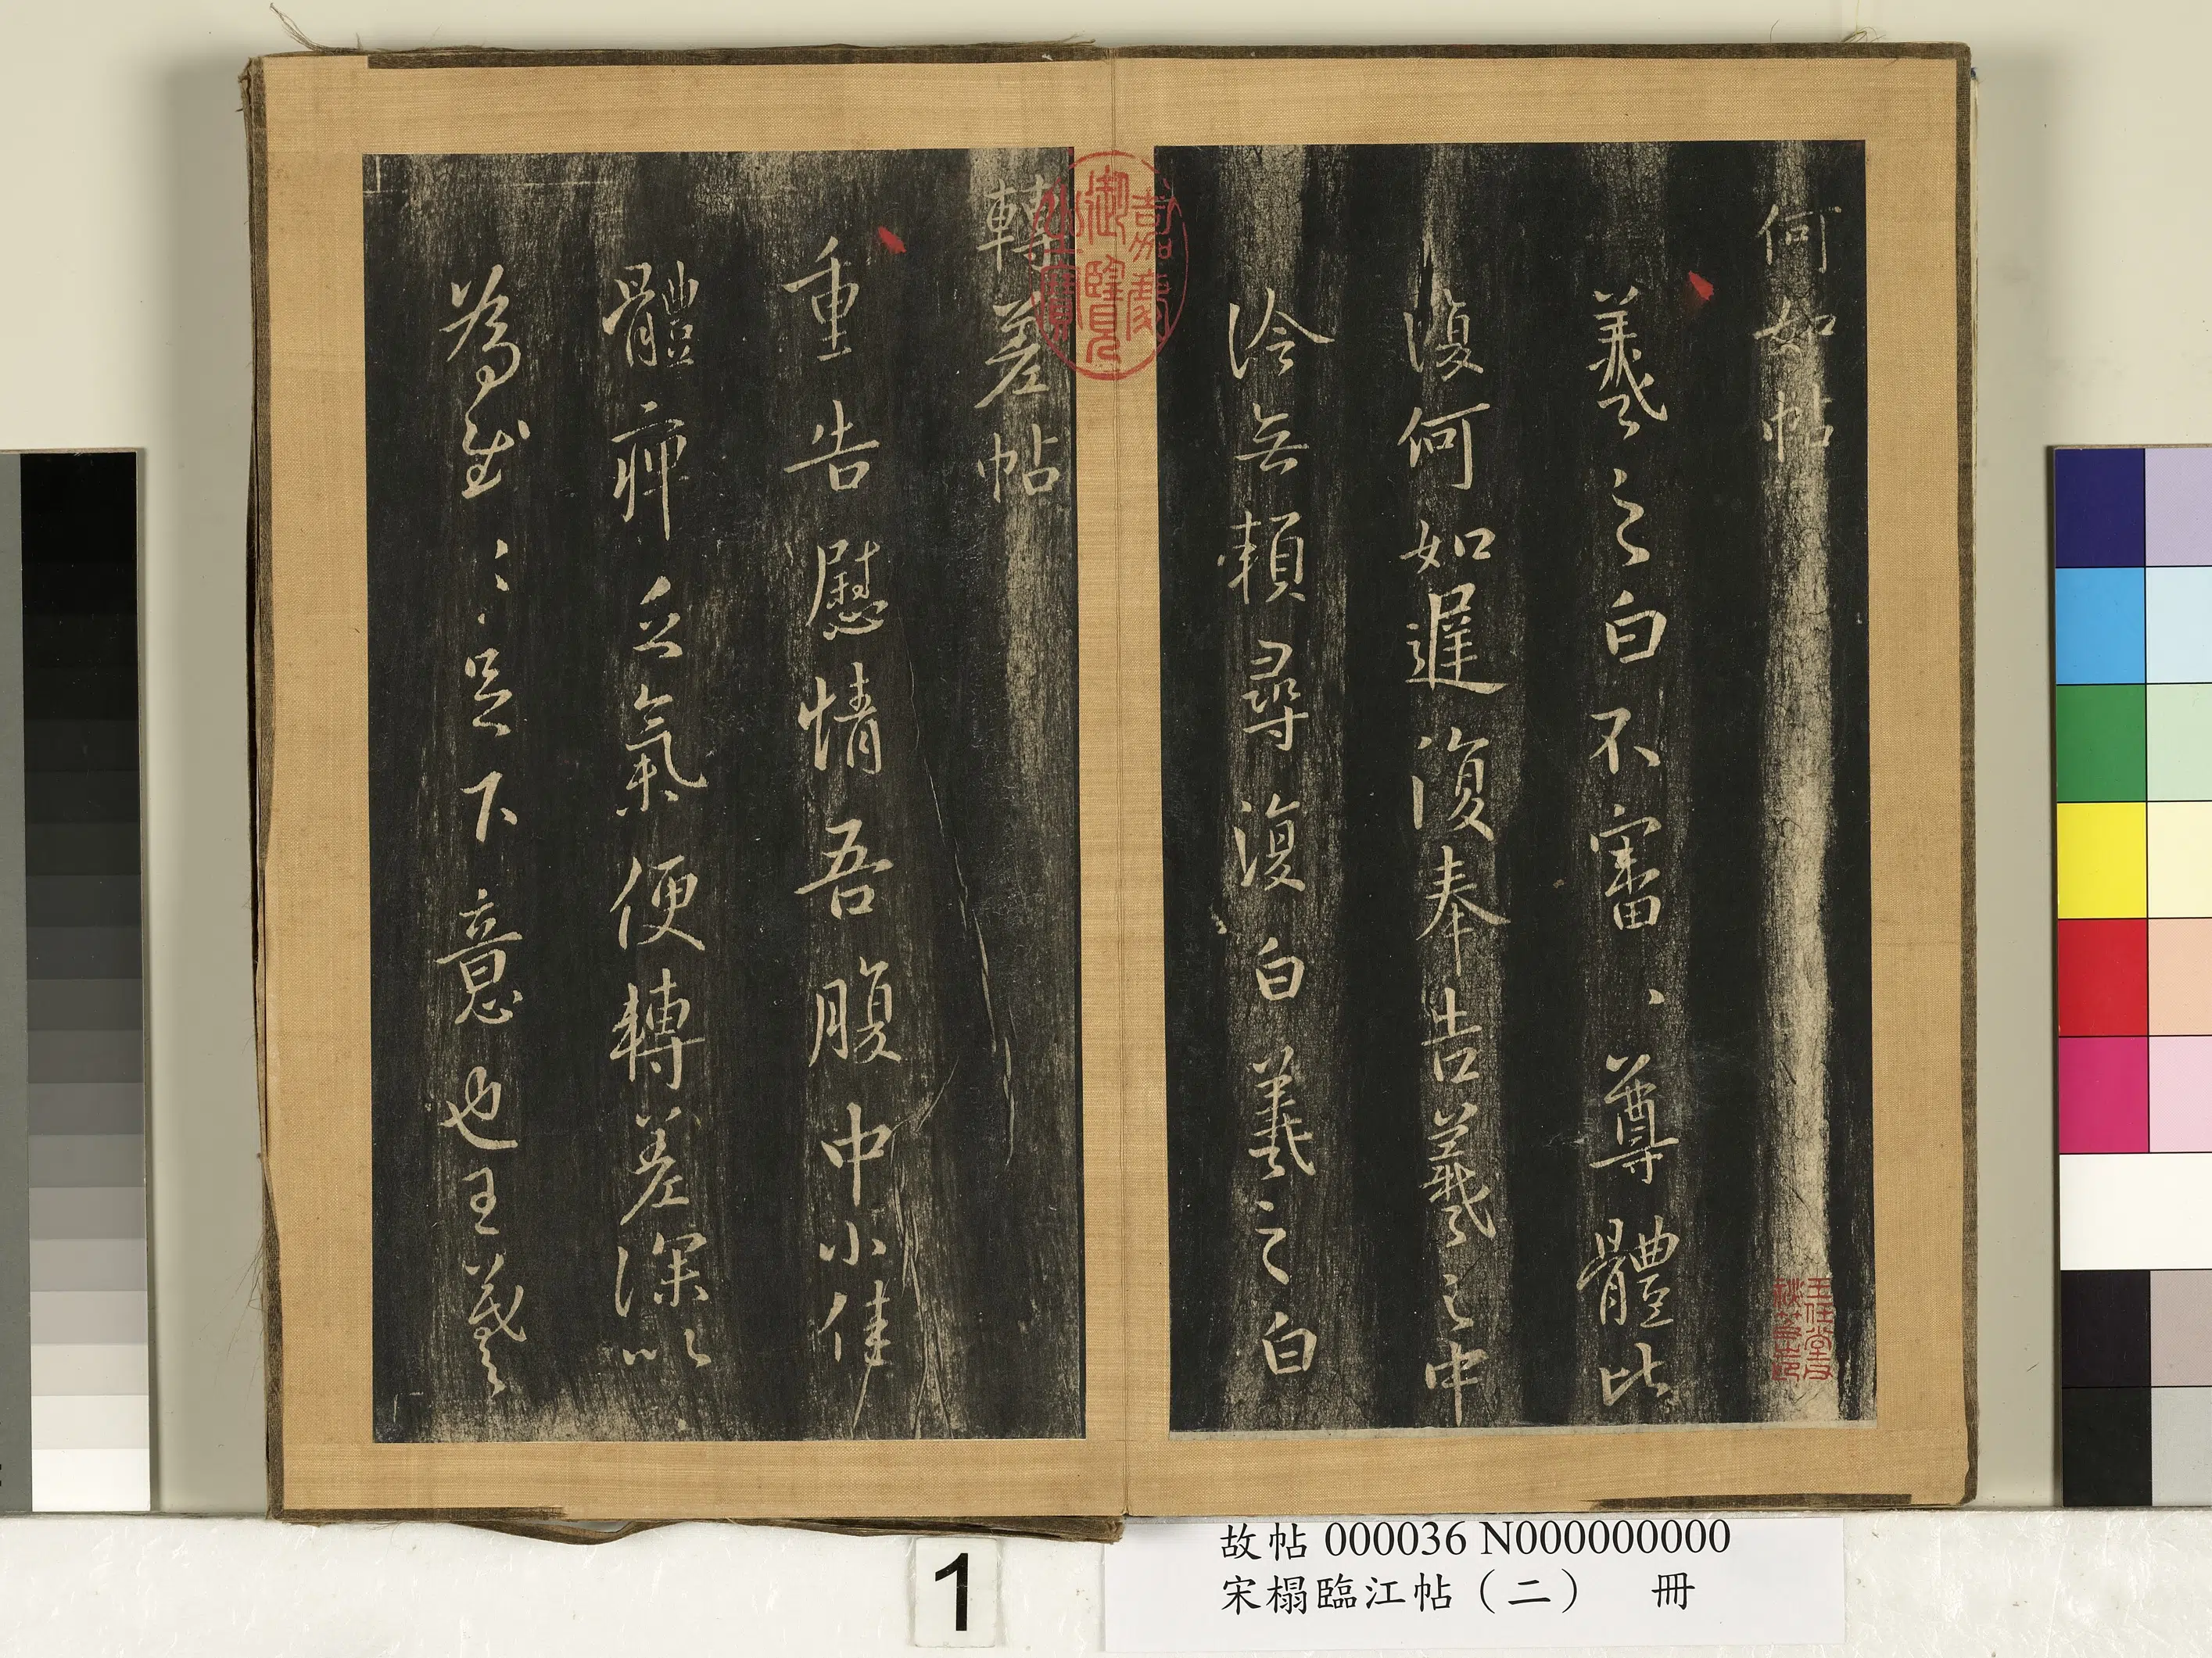 何如帖
羲之白不審、尊體比
復何如遲復奉告羲之中
冷無賴尋復白羲之白
轉差帖
重告慰情吾腹中小佳
體痺乏氣便轉差深以
為慰〻足下意也王羲
嘉慶
御覽
之寶
故帖 000036 N000000000
宋榻臨江帖（二） 冊
1